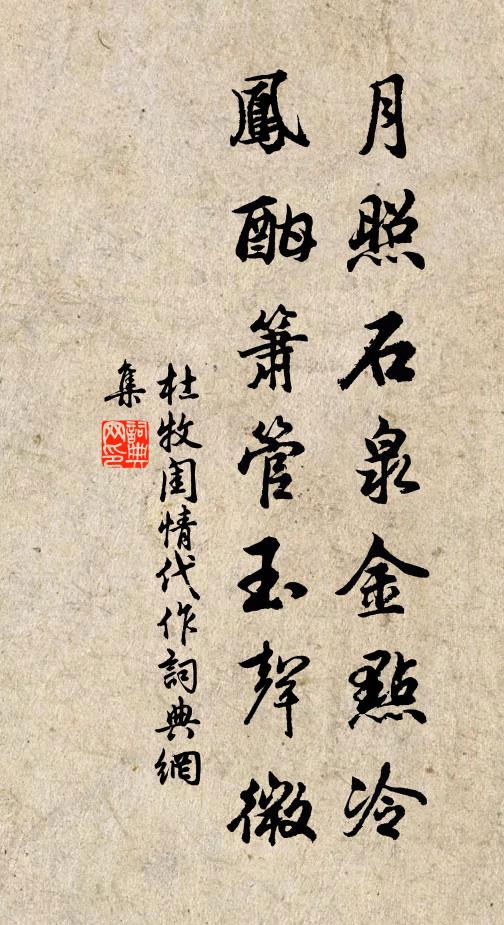 月照石泉金點冷
鳳酣簫管玉聲微
杜牧閨情代作詞典網
集
詞典
网印